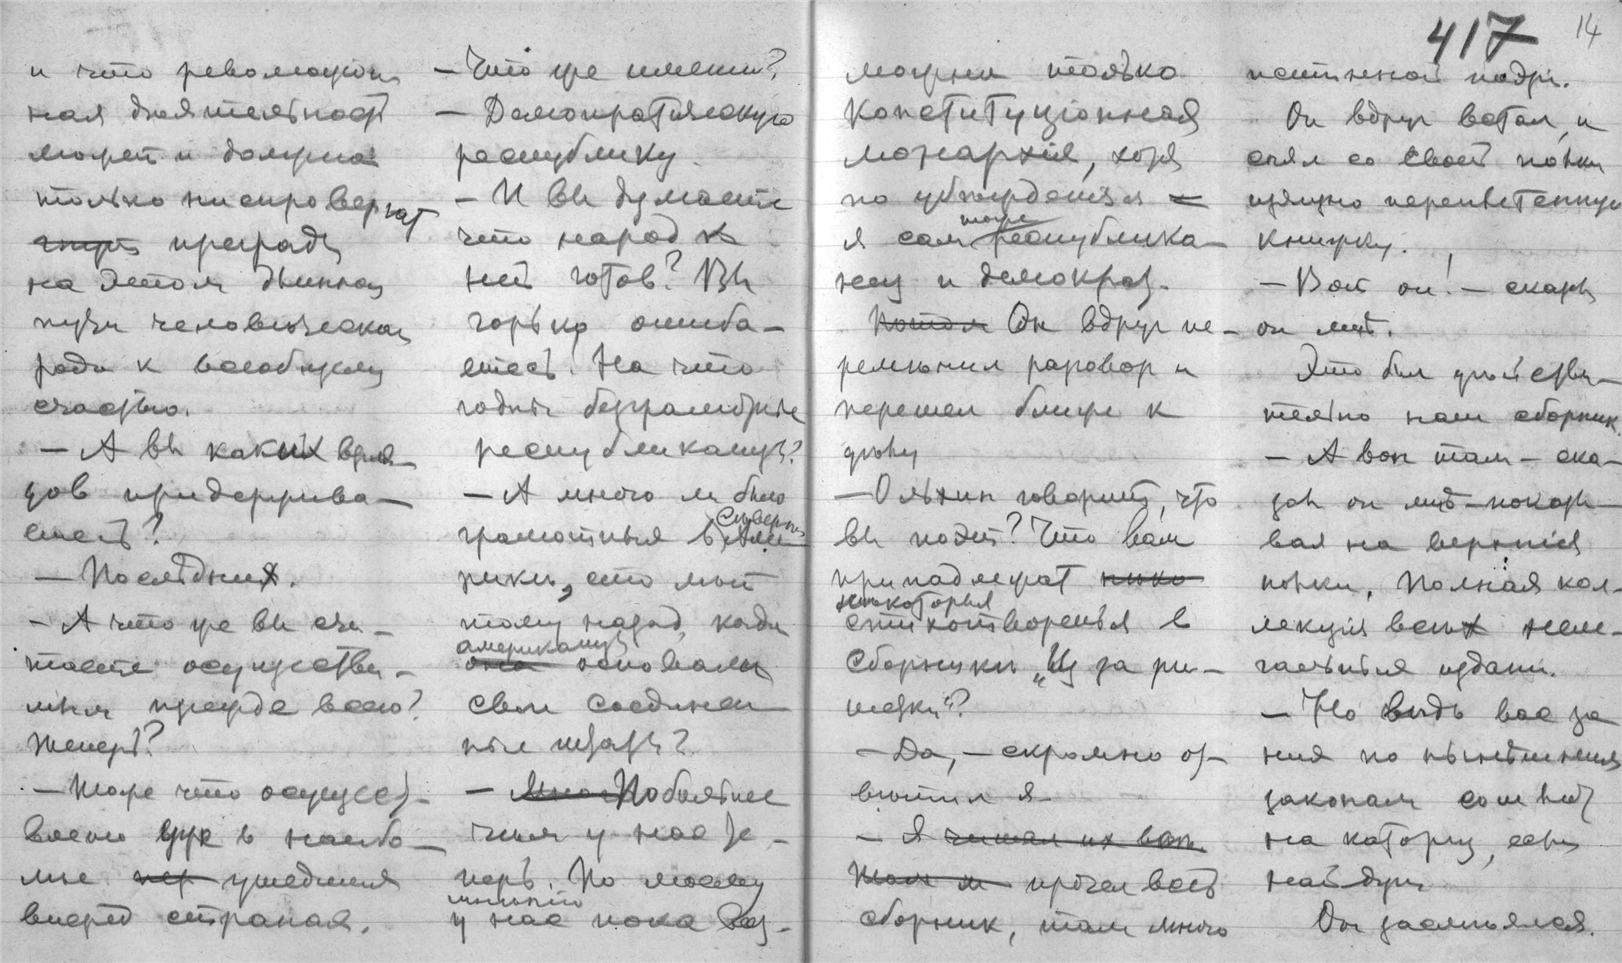 и что революцион
ная деятельность
может и должна
только ниспровергать
преграды
на этом длинном
пути человеческаго
рода к всеобщему
счастью.
— А вы каких взгля-
дов придержива-
етесь?
— Последних.
— А что же вы счи-
таете осуществи-
мым прежде всего?
Теперь?
— Тоже что осущест-
влено уже в наибо-
лее ушедших
вперед странах.
— Что же именно?
— Демократическую
республику.
— И вы думаете
что народ к
ней готов? Вы
горько ошиба-
етесь! На что
годны безграмотные
республиканцы?
— А много ли было
грамотных в Северной Аме
рике, сто лет
тому назад, когда
американцы основали
свои Соединен
ные штаты?
— Поболее
чем у нас те-
перь. По моему
мнению
у нас пока воз-
417 14
можна только
Конституционная
монархия, хотя
по убеждениям
я сам тоже республика-
нец и демократ.
Он вдруг пе-
ременил разговор и
перешел ближе к
делу
— Ольхин говорит, что
вы поэт? Что вам
принадлежат
некоторыя
стихотворения в
сборнике „Из за ре-
шетки"?
— Да, — скромно от-
ветил я.
— Я читал их вам.
Там и прочел весь
сборник, там много
истинной поэзи.
Он вдруг встал, и
снял со своей полки
изящно переплетенную
книжку.
— Вот он! — сказал
он мне.
Это был действи-
тельно наш сборник.
— А вон там — ска-
зал он мне — показы-
вая на верхния
полки, полная кол-
лекция всех неле-
гальных изданий.
— Но ведь вас за
ния по нынешним
законам сошлют
на каторгу, если
найдут.
Он засмеялся.